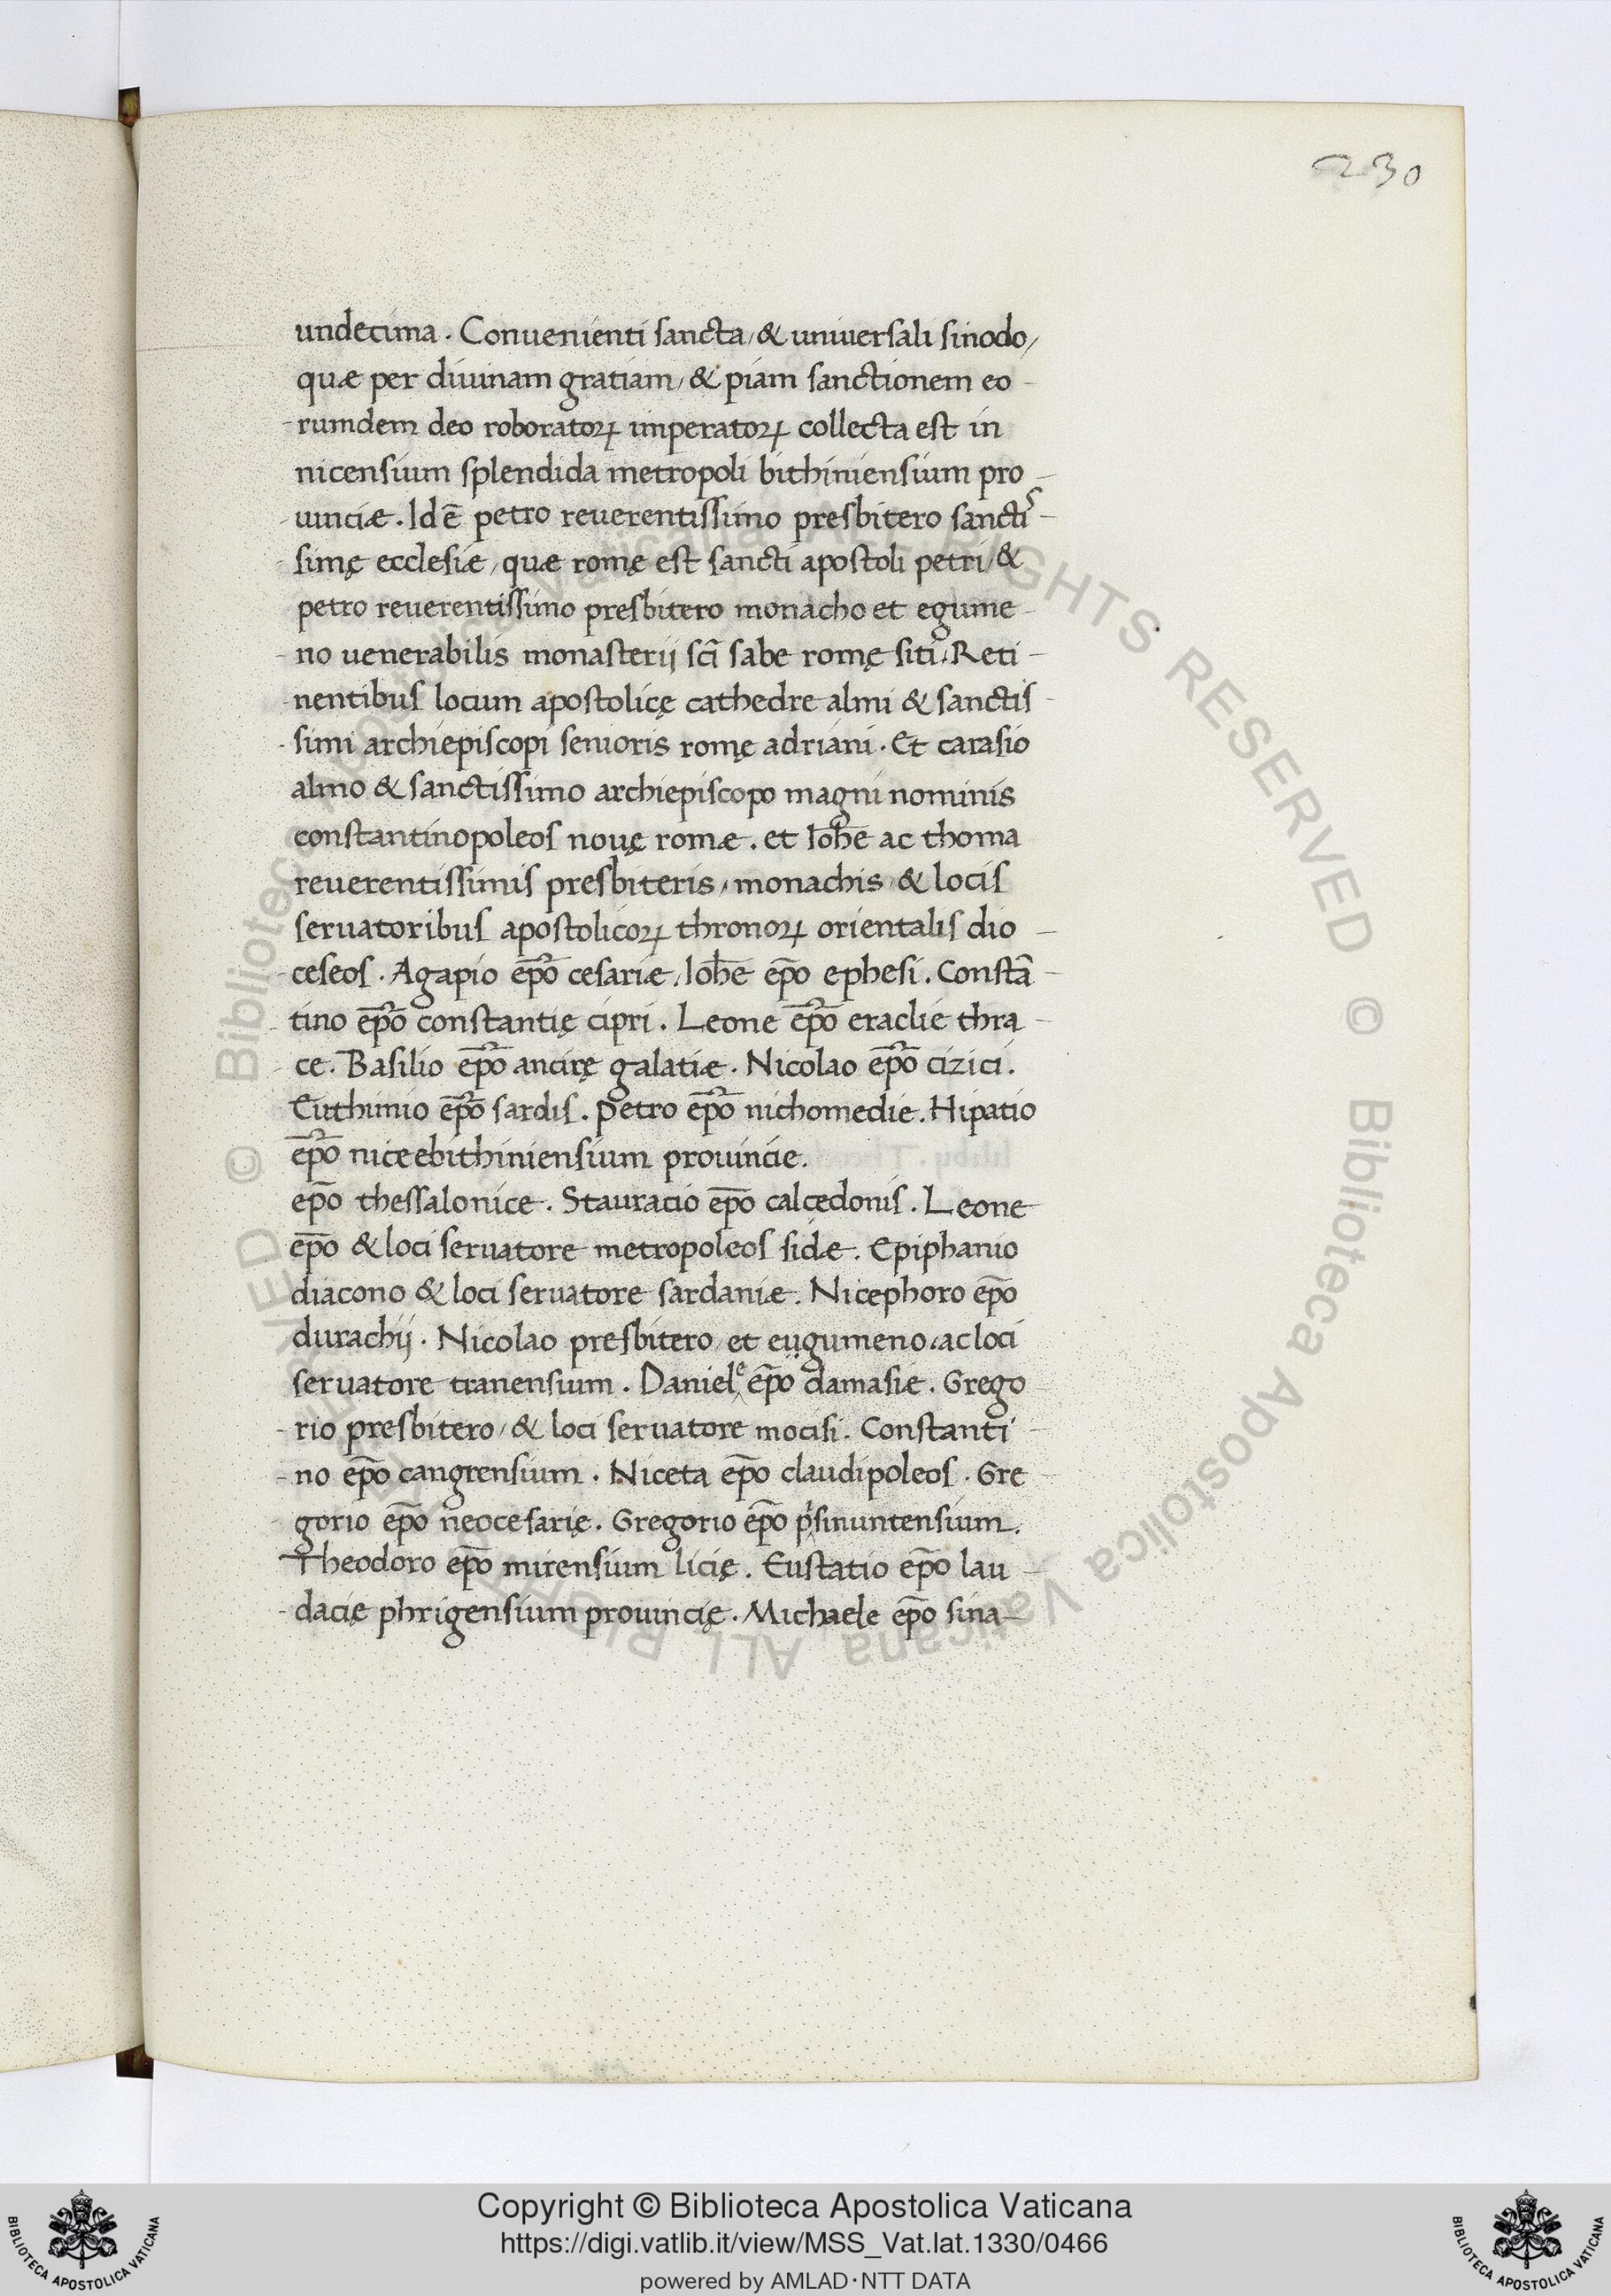 230
undecima. Conuenienti sancta, & uniuersali sinodo,
quæ per diuinam gratiam, & piam sanctionem eo-
rumdem deo roboratoꝝ imperatoꝝ collecta est in
nicensium splendida metropoli bithiniensium pro-
uinciæ. Id ē petro reuerentissimo presbitero sanctis-
simę ecclesiæ, quæ romę est sancti apostoli petri, &
petro reuerentissimo presbitero monacho et egume-
no uenerabilis monasterij sc̄i sabe romę siti, Reti-
nentibus locum apostolicę cathedre almi & sanctis-
simi archiepiscopi senioris romę adriani. Et carasio
almo & sanctissimo archiepiscopo magni nominis
constantinopoleos nouę romæ. et Ioħe ac thoma
reuerentissimis presbiteris, monachis, & locis
seruatoribus apostolicoꝝ thronoꝝ orientalis dio-
ceseos. Agapio ep̄o cesariæ, Ioħe ep̄o ephesi. Constā-
tino ep̄o constantię cipri. Leone ep̄o eraclie thra-
ce. Basilio ep̄o ancirę galatiæ. Nicolao ep̄o cizici.
Euthimio ep̄o sardis. Petro ep̄o nichomedie. Hipatio
ep̄o niceebithiniensium prouincie.
ep̄o thessalonice. Stauracio ep̄o calcedonis. Leone
ep̄o & loci seruatore metropoleos sidæ. Epiphanio
diacono & loci seruatore sardaniæ. Nicephoro ep̄o
durachij. Nicolao presbitero, et eugumeno, ac loci
seruatore tranensium. Daniele ep̄o damasie. Grego
rio presbitero, & loci seruatore mocisi. Constanti-
no ep̄o cangrensium. Niceta ep̄o claudipoleos. Gre
gorio ep̄o neocesarię. Gregorio ep̄o pisinuntensium.
Theodoro ep̄o mirensium licię. Eustatio ep̄o lau-
dacię phrigensium prouincię. Michaele ep̄o sina-
© Biblioteca Apostolica Vaticana ALL RIGHTS RESERVED © Biblioteca Apostolica Vaticana ALL RIGHTS RESERVED
Copyright © Biblioteca Apostolica Vaticana
https://digi.vatlib.it/view/MSS_Vat.lat.1330/0466
powered by AMLAD·NTT DATA
BIBLIOTECA APOSTOLICA VATICANA
BIBLIOTECA APOSTOLICA VATICANA